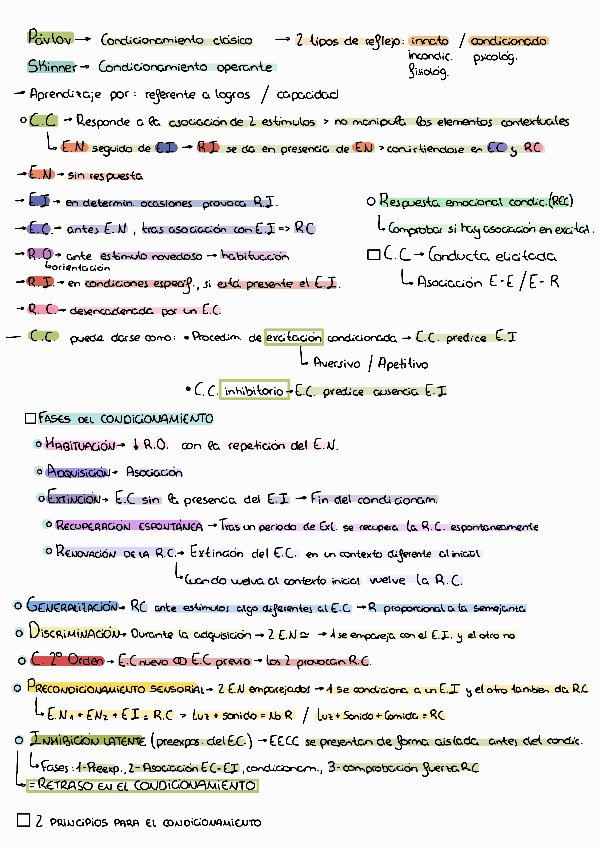 Pávlov → Condicionamiento clásico → 2 tipos de reflejo: innato / condicionado
incondic. psicológ.
fisiológ.
Skinner → Condicionamiento operante
→ Aprendizaje por: referente a logros / capacidad
○ C.C → Responde a la asociación de 2 estímulos > no manipula los elementos contextuales
↳ E.N seguido de E.I → R.I se da en presencia de EN > convirtiéndose en EC y RC
→ E.N → sin respuesta
→ E.I → en determin. ocasiones provoca R.I.
→ E.C → antes E.N, tras asociación con E.I => RC
→ R.O → ante estímulo novedoso → habituación
↳ orientación
→ R.I → en condiciones específ., si está presente el E.I.
→ R.C → desencadenada por un E.C.
○ Respuesta emocional condic. (REC)
↳ Comprobar si hay asociación en excitat.
□ C.C → Conducta elicitada
↳ Asociación E-E / E-R
— C.C puede darse como: • Procedim. de excitación condicionada → E.C. predice E.I
↳ Aversivo / Apetitivo
• C.C. inhibitorio → E.C. predice ausencia E.I
□ FASES DEL CONDICIONAMIENTO
○ HABITUACIÓN → ↓ R.O. con la repetición del E.N.
○ ADQUISICIÓN → Asociación
○ EXTINCIÓN → E.C sin la presencia del E.I → Fin del condicionam.
○ RECUPERACIÓN ESPONTÁNEA → Tras un periodo de Ext. se recupera la R.C. espontáneamente
○ RENOVACIÓN DE LA R.C. → Extinción del E.C. en un contexto diferente al inicial
↳ Cuando vuelva al contexto inicial vuelve la R.C.
○ GENERALIZACIÓN → RC ante estímulos algo diferentes al E.C → R proporcional a la semejanza
○ DISCRIMINACIÓN → Durante la adquisición → 2 E.N ≃ → 1 se empareja con el E.I. y el otro no
○ C. 2º Orden → E.C nuevo ↀ E.C previo → los 2 provocan R.C.
○ PRECONDICIONAMIENTO SENSORIAL → 2 EN emparejados → 1 se condiciona a un E.I y el otro también da RC
↳ E.N₁ + EN₂ + E.I = R.C > Luz + sonido = No R / Luz + Sonido + Comida = RC
○ INHIBICIÓN LATENTE (preexpos. del EC.) → EECC se presentan de forma aislada antes del condic.
↳ Fases: 1-Preexp., 2-Asociación EC-EI, condicionam., 3-comprobación fuerza RC
↳ = RETRASO EN EL CONDICIONAMIENTO
□ 2 PRINCIPIOS PARA EL CONDICIONAMIENTO